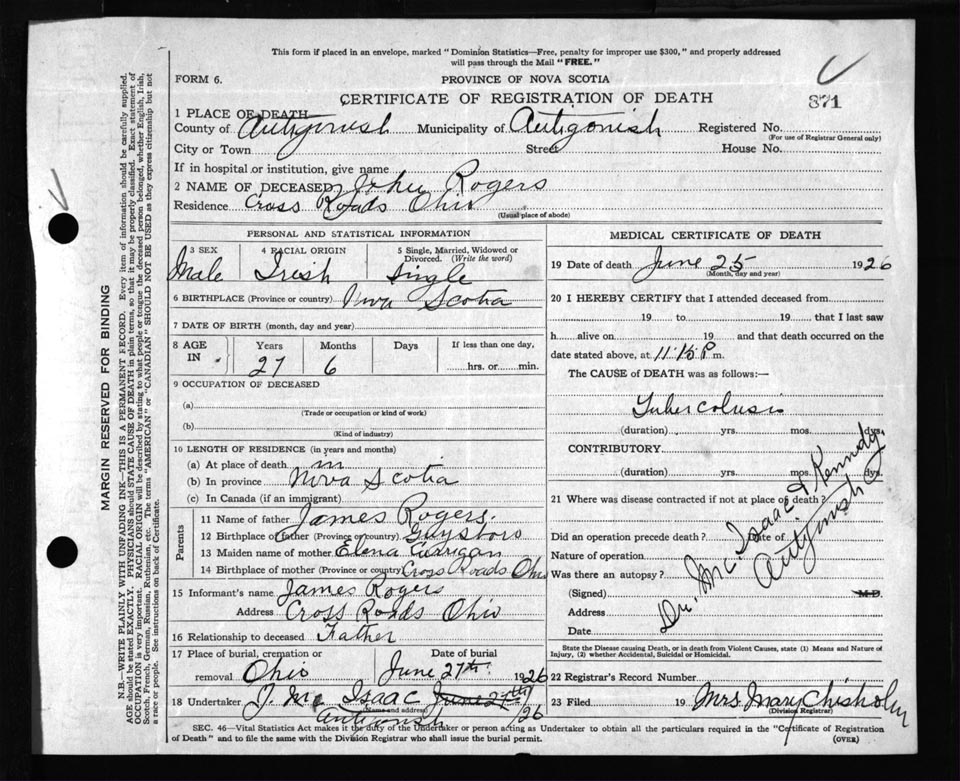 This form if placed in an envelope, marked "Dominion Statistics—Free, penalty for improper use $300," and properly addressed
will pass through the Mail "FREE."
FORM 6.
PROVINCE OF NOVA SCOTIA
CERTIFICATE OF REGISTRATION OF DEATH
871
1 PLACE OF DEATH
County of Antigonish Municipality of Antigonish Registered No.
(For use of Registrar General only)
City or Town Street House No.
If in hospital or institution, give name
2 NAME OF DECEASED John Rogers
Residence Cross Roads Ohio
(Usual place of abode)
PERSONAL AND STATISTICAL INFORMATION
3 SEX 4 RACIAL ORIGIN 5 Single, Married, Widowed or
Divorced. (Write the word)
Male Irish Single
6 BIRTHPLACE (Province or country) Nova Scotia
7 DATE OF BIRTH (month, day and year)
8 AGE
IN
Years Months Days If less than one day,
27 6 hrs. or min.
9 OCCUPATION OF DECEASED
(a)
(Trade or occupation or kind of work)
(b)
(Kind of industry)
10 LENGTH OF RESIDENCE (in years and months)
(a) At place of death in
(b) In province Nova Scotia
(c) In Canada (if an immigrant)
Parents
11 Name of father James Rogers.
12 Birthplace of father (Province or country) Guysboro
13 Maiden name of mother Elena Currigan
14 Birthplace of mother (Province or country) Cross Roads Ohio
15 Informant's name James Rogers
Address Cross Roads Ohio
16 Relationship to deceased Father
17 Place of burial, cremation or Date of burial
removal Ohio June 27th. 1926
18 Undertaker J. Mc Isaac June 27th/26
(Name and address)
Antigonish
MEDICAL CERTIFICATE OF DEATH
19 Date of death June 25 1926
(Month, day and year)
20 I HEREBY CERTIFY that I attended deceased from
19 to 19 that I last saw
h alive on 19 and that death occurred on the
date stated above, at 11.15 P m.
The CAUSE of DEATH was as follows:—
Tuberculosis
(duration) yrs. mos. dys.
CONTRIBUTORY
(duration) yrs. mos. dys.
21 Where was disease contracted if not at place of death?
Did an operation precede death? Date of
Nature of operation
Was there an autopsy?
(Signed) M.D.
Address
Date
Dr. Mc. Isaac & Kennedy
Antigonish
State the Disease causing Death, or in death from Violent Causes, state (1) Means and Nature of
Injury, (2) whether Accidental, Suicidal or Homicidal.
22 Registrar's Record Number
23 Filed 19 Mrs. Mary Chisholm
(Division Registrar)
SEC. 46—Vital Statistics Act makes it the duty of the Undertaker or person acting as Undertaker to obtain all the particulars required in the "Certificate of Registration
of Death" and to file the same with the Division Registrar who shall issue the burial permit.
(OVER)
MARGIN RESERVED FOR BINDING
N.B.—WRITE PLAINLY WITH UNFADING INK—THIS IS A PERMANENT RECORD. Every item of information should be carefully supplied.
AGE should be stated EXACTLY. PHYSICIANS should STATE CAUSE OF DEATH in plain terms, so that it may be properly classified. Exact statement of
OCCUPATION is very important. RACIAL ORIGIN will be described by stating to what people or tongue the deceased person belonged, whether English, Irish,
Scotch, French, German, Russian, Ruthenian, etc. The terms "AMERICAN" or "CANADIAN" SHOULD NOT BE USED as they express citizenship but not
a race or people. See instructions on back of Certificate.